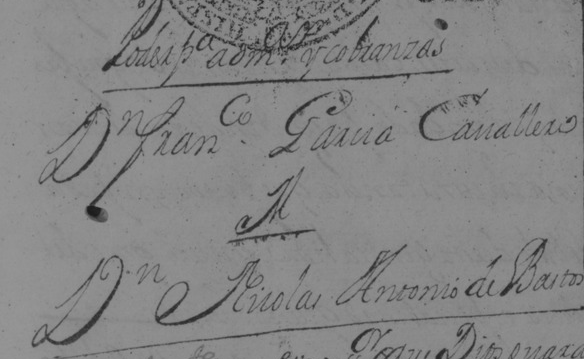 Poder pa. admon. y cobranzas
Dn. Franco. Garcia Cavallero
A
Dn. Nicolas Antonio de Bastos